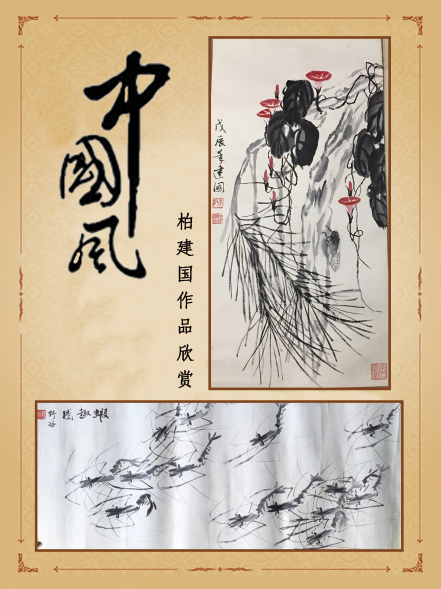 中國风
柏建国作品欣赏
戊辰年建國
蝦趣圖
野谷